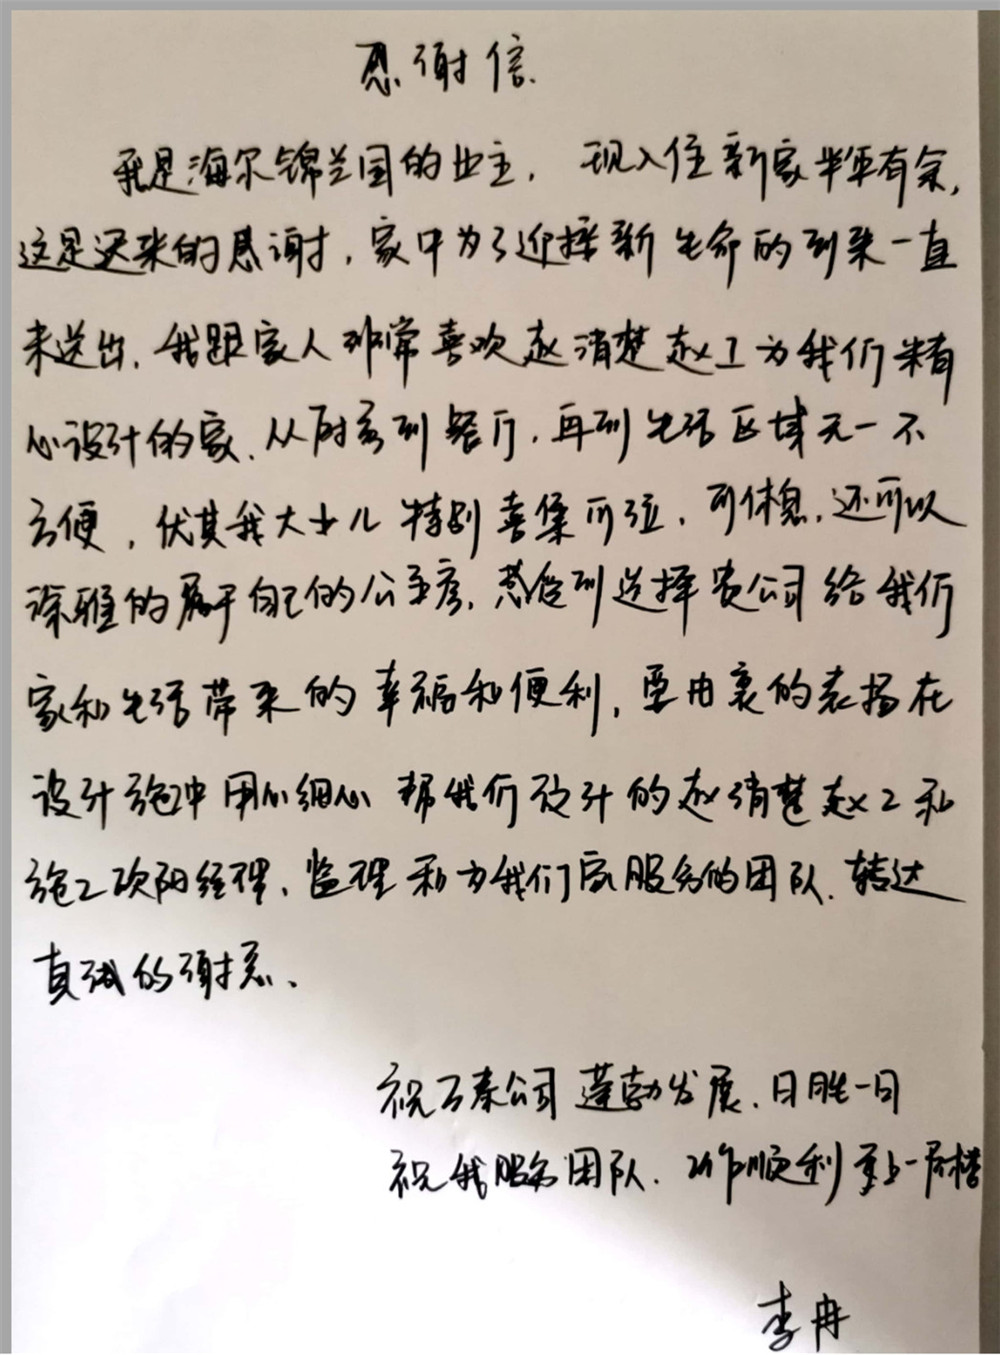 感谢信.
我是海尔锦兰园的业主，现入住新家半年有余，
这是迟来的感谢，家中为了迎接新生命的到来一直
未送出，我跟家人非常喜欢赵清楚赵工为我们精
心设计的家、从厨房到餐厅，再到生活区域无一不
方便，伏其我大女儿特别喜集可玩，可休息，还可以
深睡的属于自己的公主房，感受到选择贵公司给我们
家和生活带来的幸福和便利，要由衷的表扬在
设计施中用心细心帮我们设计的赵清楚赵工和
施工欧阳经理、监理和为我们家服务的团队、转达
真诚的谢意、
祝万泰公司蓬勃发展、日胜一日
祝我服务团队、工作顺利更上一层楼
李冉